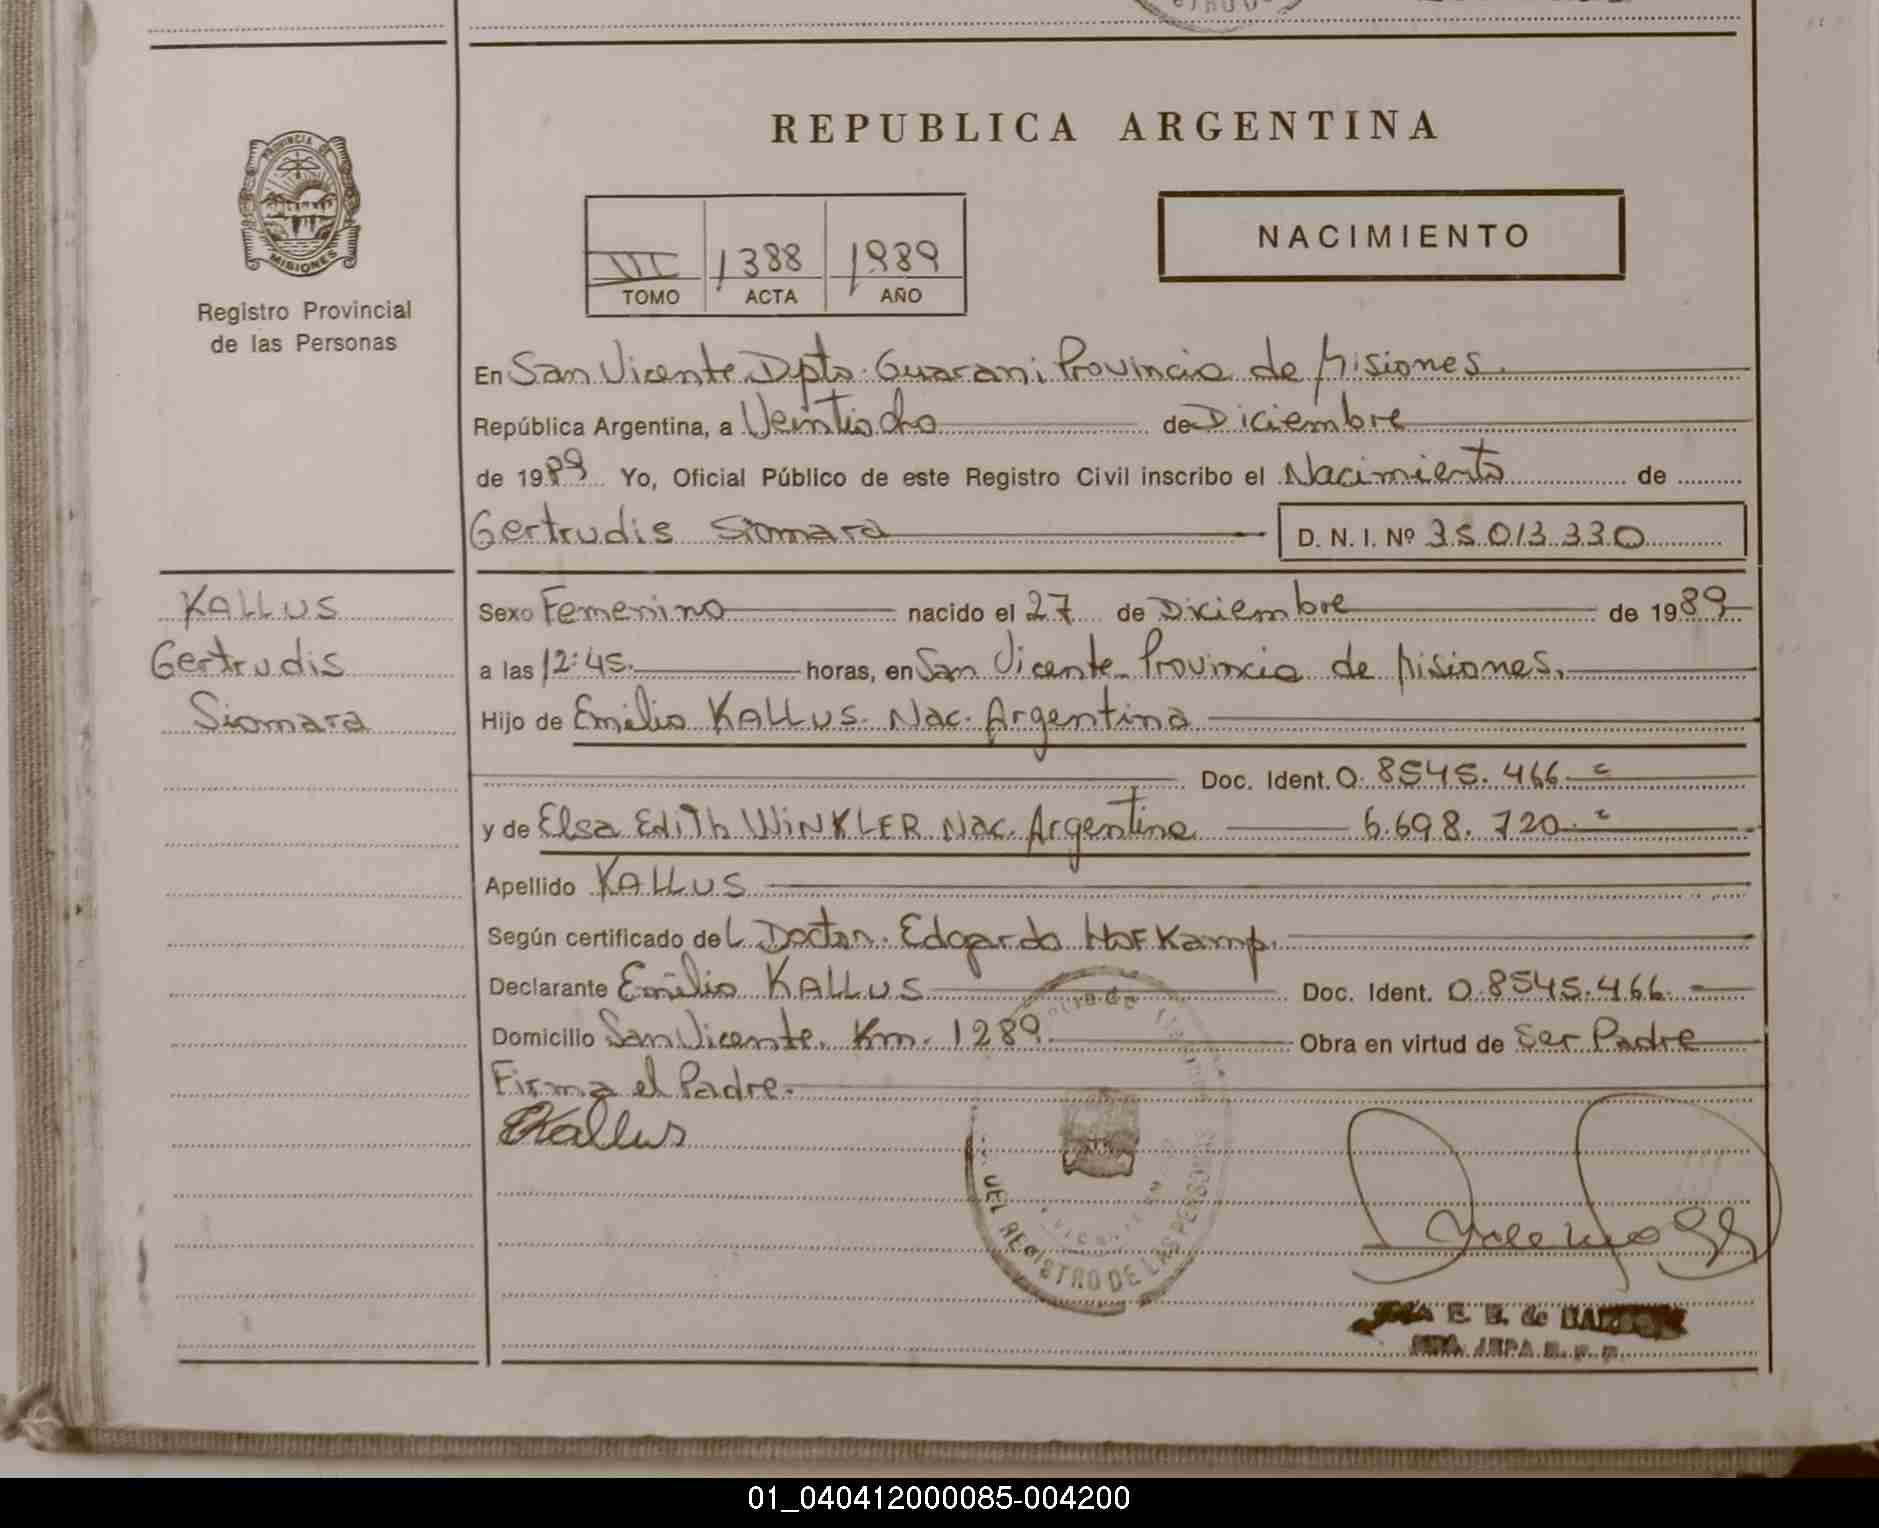 REPUBLICA ARGENTINA
PROVINCIA DE
MISIONES
Registro Provincial
de las Personas
NACIMIENTO
1388 1989
TOMO ACTA AÑO
En San Vicente Dpto. Guarani Provincia de Misiones.
República Argentina, a Veintiocho de Diciembre
de 1989 Yo, Oficial Público de este Registro Civil inscribo el Nacimiento de
Gertrudis Siomara D. N. I. Nº 35.013.330
KALLUS
Gertrudis
Siomara
Sexo Femenino nacido el 27 de Diciembre de 1989
a las 12:45. horas, en San Vicente Provincia de Misiones.
Hijo de Emilio KALLUS. Nac. Argentina
Doc. Ident. 0.8545.466.
y de Elsa Edith WINKLER Nac. Argentina 6.698.720.
Apellido KALLUS
Según certificado del Doctor. Edgardo Hofkamp.
Declarante Emilio KALLUS Doc. Ident. 0.8545.466.
Domicilio San Vicente. Km. 1289. Obra en virtud de Ser Padre
Firma el Padre.
EKallus
DEL REGISTRO DE LAS PERSONAS
E. B. de
01_040412000085-004200